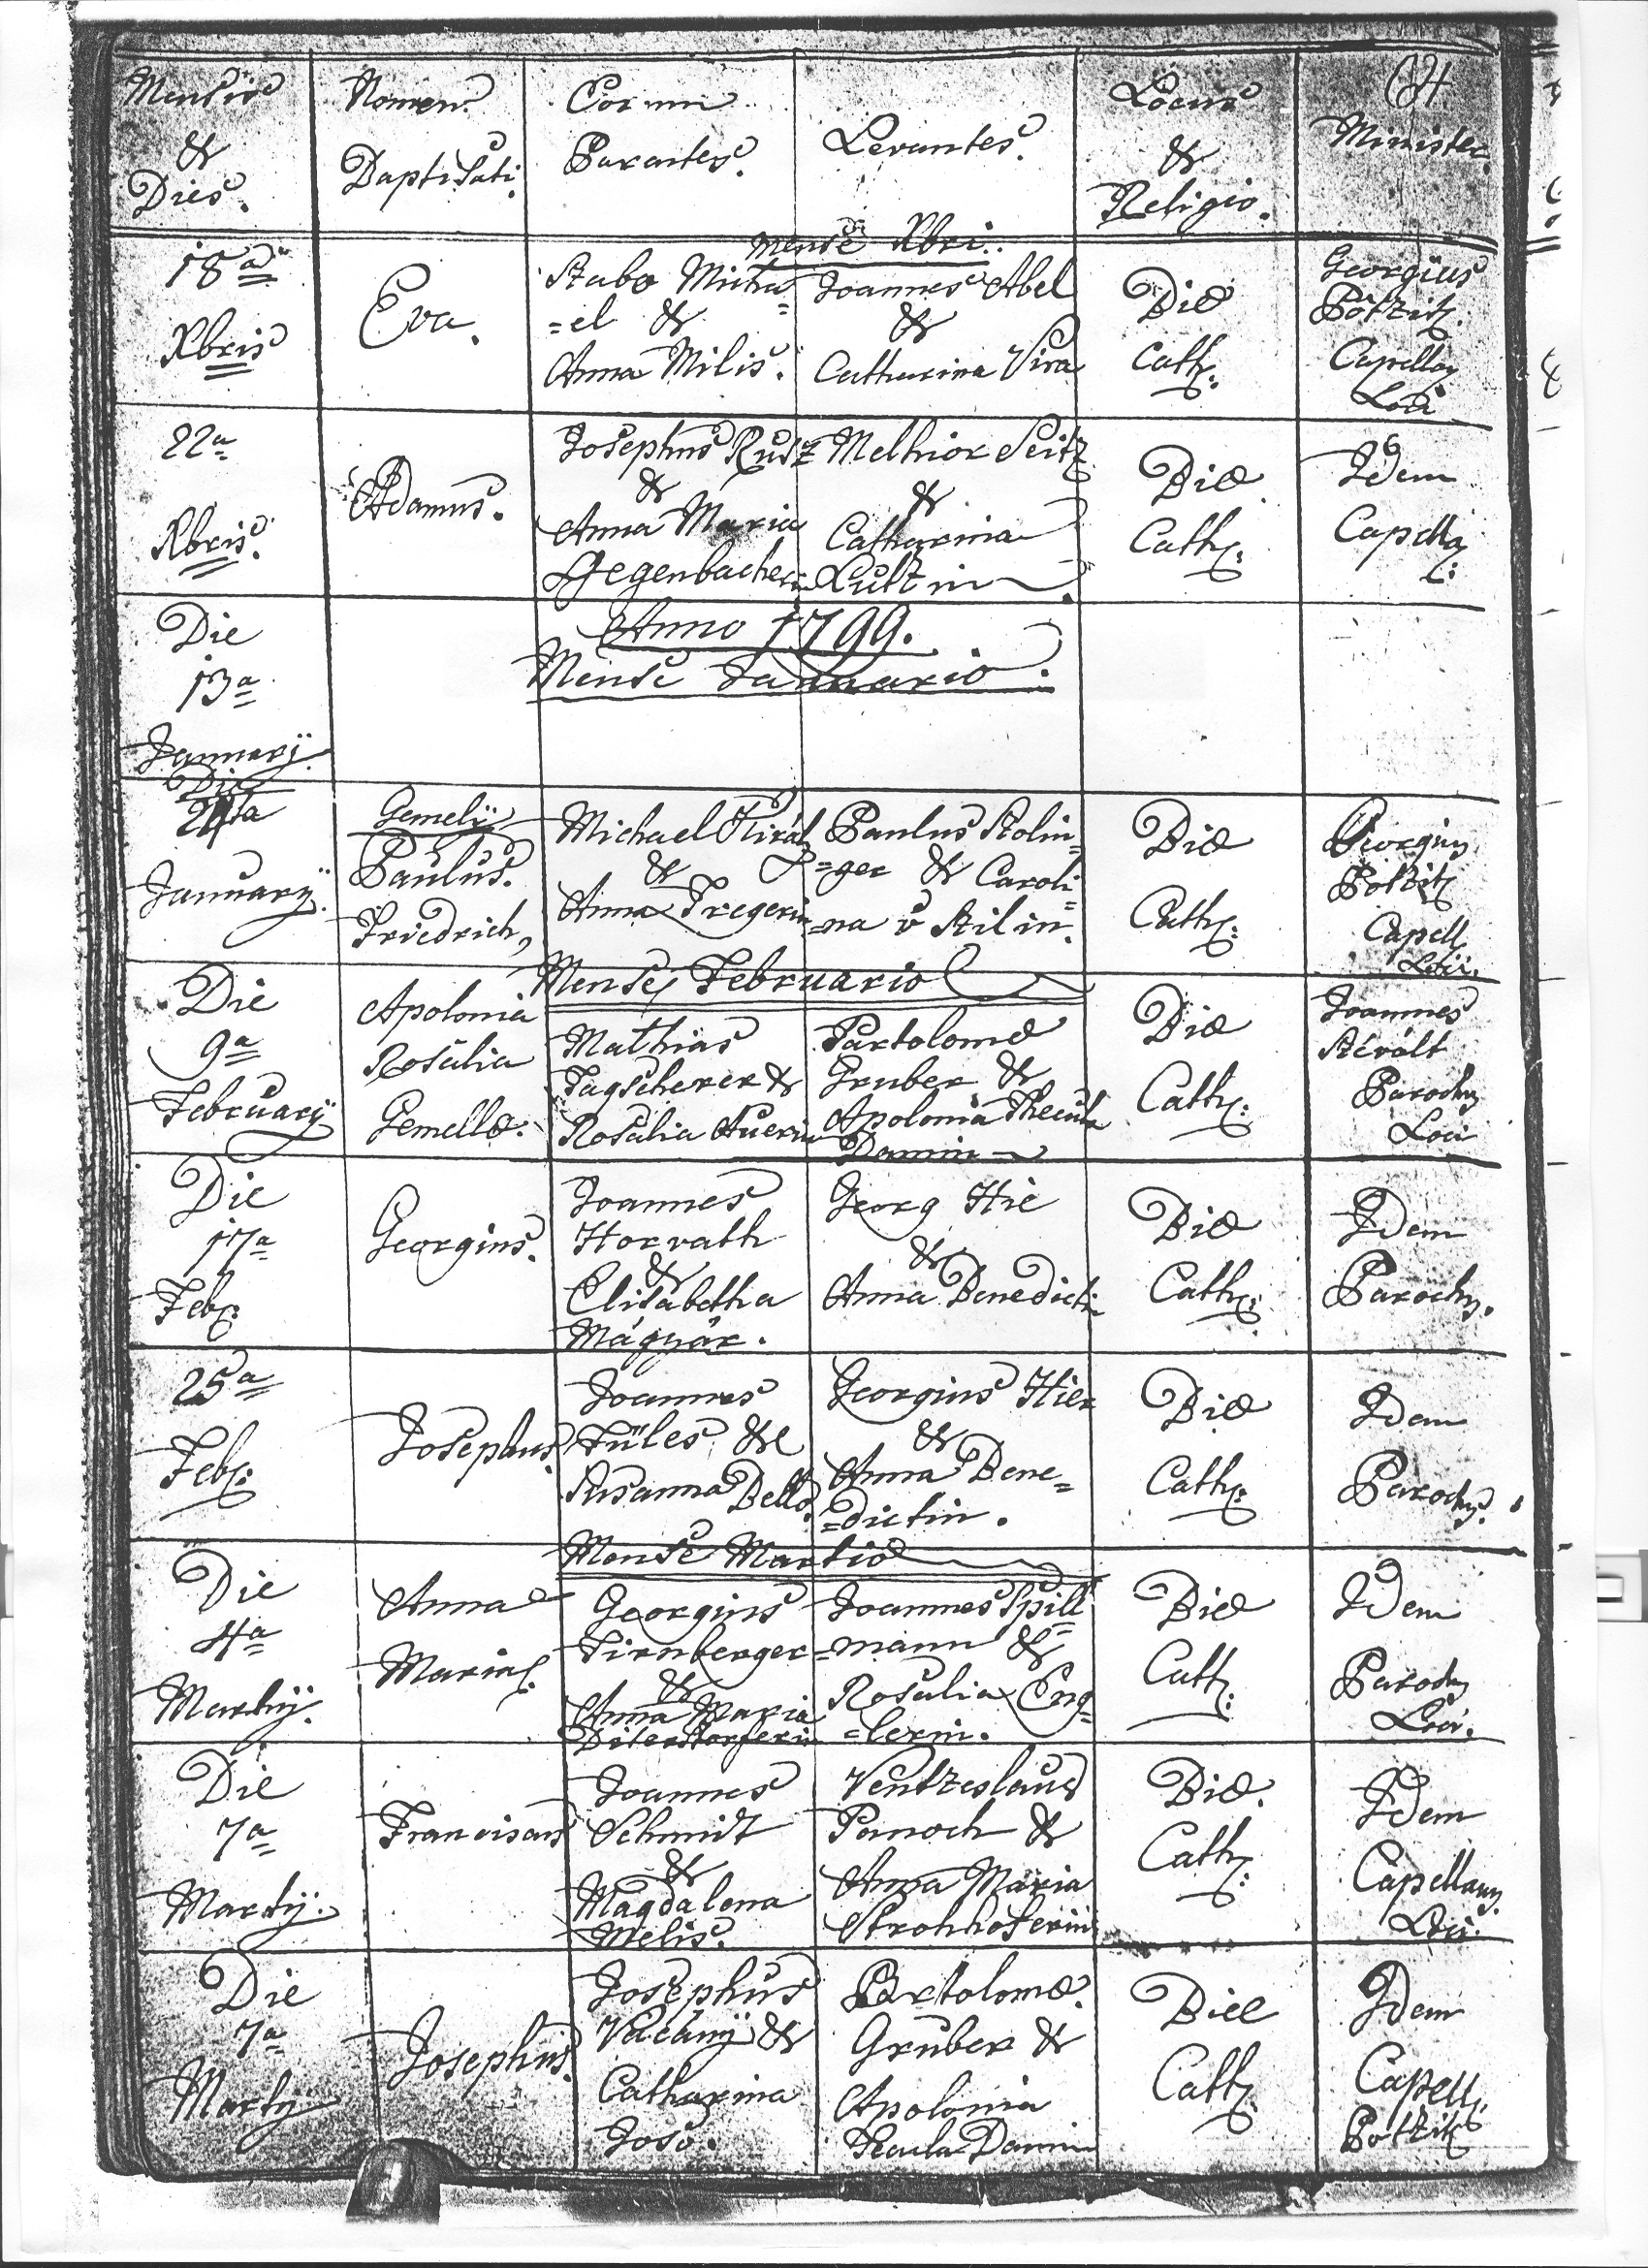 64
Mensis
&
Dies.
Nomen
Baptisati.
Eorum
Parentes.
Levantes.
Locus
&
Religio.
Minister.
Mense Xbri.
18a
Xbris
Eva.
Szabo Micha=
=el &
Anna Milis.
Joannes Abel
&
Catharina Vira
Biæ
Cath:
Georgius
Potzit
Capellan
Loci
22a
Xbris.
Adamus.
Josephus Rusz
&
Anna Maria
Gegenbacherin
Melhior Seitz
&
Catharina
Lultzin
Biæ
Cath:
Idem
Capella:
Die
13a
January.
Anno 1799.
Mense Januario.
Die
24ta
Januarÿ.
Gemelÿ
Paulus.
Friedrich,
Michael Király
&
Anna Tregerin
Paulus Stolin=
=ger & Caroli=
=na v Stilin.
Biæ
Cath:
Georgius
Potzit
Capell
Loci.
Mense Februario
Die
9a
Februarÿ
Apolonia
Rosalia
Gemellæ.
Mathias
Tagscherer &
Rosalia Auerin
Partolomæ
Gruber &
Apolonia Thecula
Damin
Biæ
Cath:
Joannes
Parochy
Loci
Die
17a
Feb:
Georgius.
Joannes
Horvath
&
Elisabetha
Mágyár.
Georg Hie
&
Anna Benedicti
Biæ
Cath:
Idem
Parochy.
25a
Feb:
Josephus.
Joannes
Füles &
Susanna Bello.
Georgius Hier
&
Anna Bene=
=dictin.
Biæ
Cath:
Idem
Parochy.
Mense Martio
Die
4a
Martÿ.
Anna
Maria.
Georgius
Firnberger
&
Anna Maria
Diterstorferin
Joannes Spill=
=mann &
Rosalia Eng=
=lerin.
Biæ
Cath:
Idem
Parochy
Loci.
Die
7a
Martÿ.
Franciscus
Joannes
Schmidt
&
Magdalena
Melis.
Ventzeslaus
Panoch &
Anna Maria
Strohhoferin
Biæ.
Cath:
Idem
Capellany
Loci.
Die
7a
Martÿ
Josephus.
Josephus
&
Catharina
Joso.
Bartolomæ.
Gruber &
Apolonia
Thecula Damin
Biæ
Cath:
Idem
Capell.
Potzit